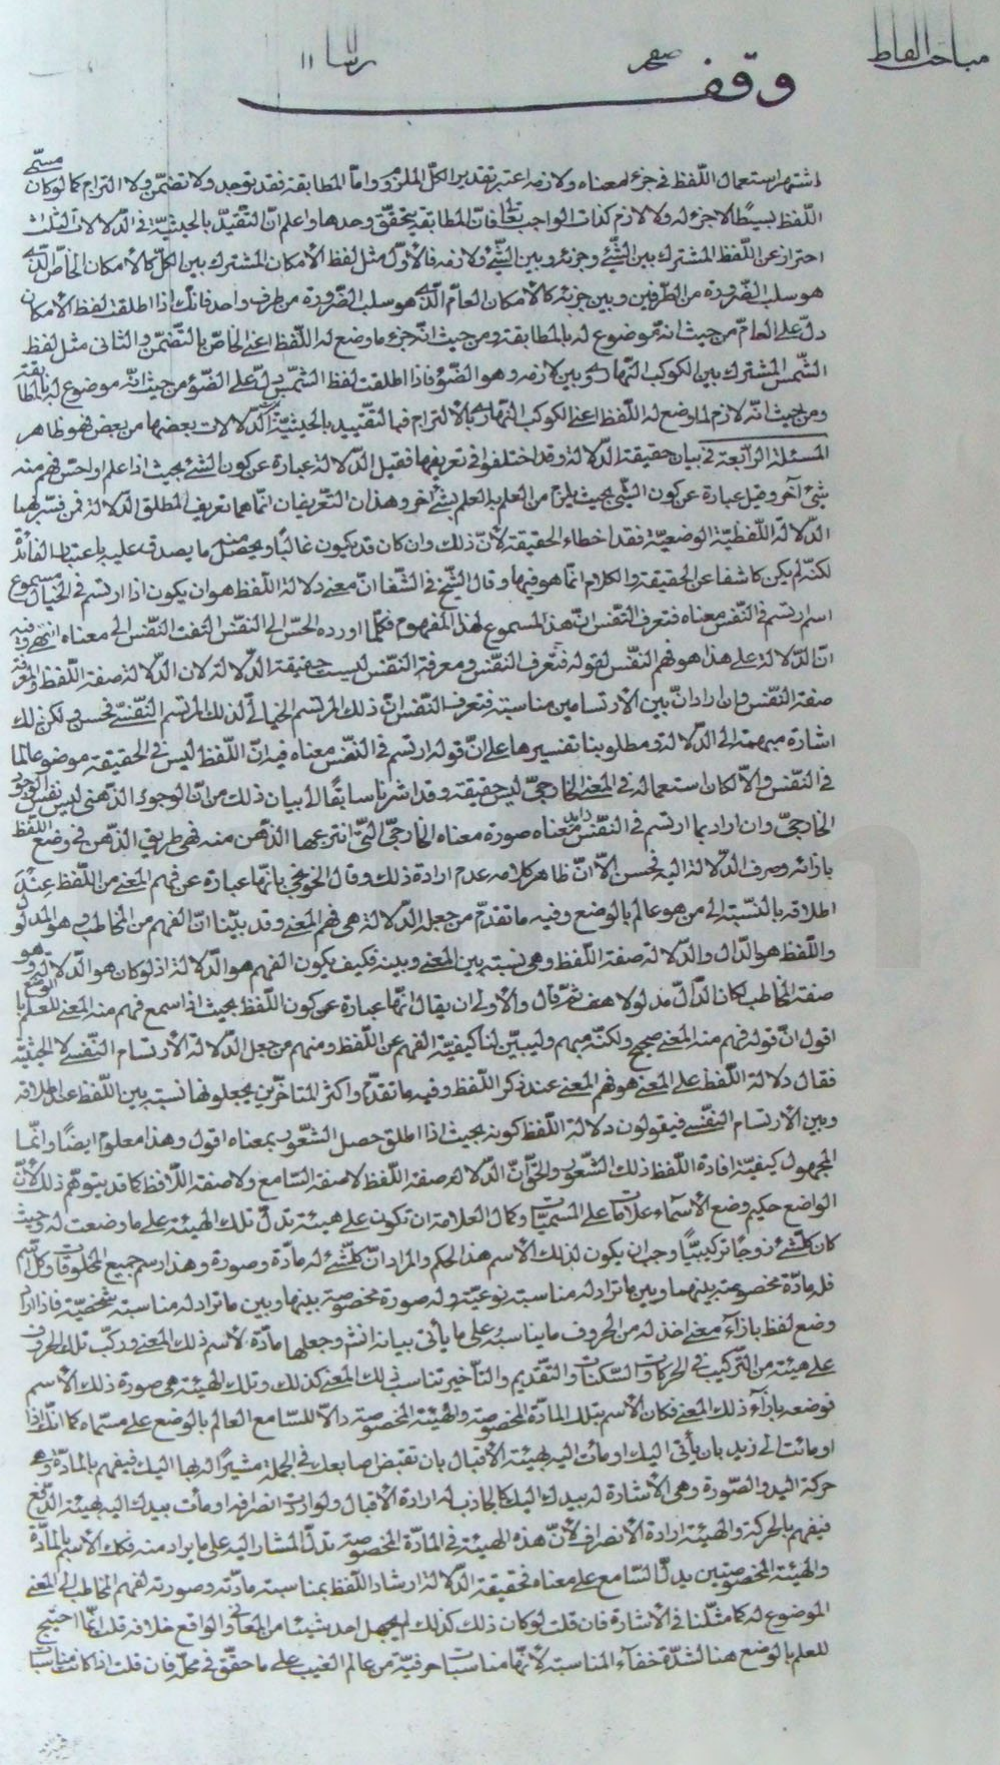 مباحث الفاظ
صفحه
رسالة ١١
وقف
اشتهر استعمال اللّفظ فى جزء معناه ولازمه اعتبر بتقدير الكلّ الملزوم وامّا المطابقة فقد توجد ولا تضمّن ولا التزام كما لو كان مسمّى
اللّفظ بسيطًا لا جزء له ولا لازم كذات الواجب تعالى فانّ المطابقة يتحقّق وحدها واعلم انّ التّقييد بالحيثيّة فى الدّلالات الثلث
احتراز عن اللّفظ المشترك بين الشّيء وجزئه وبين الشّيء ولازمه فالأوّل مثل لفظ الأمكان المشترك بين الكلّ كالأمكان الخاصّ الّذى
هو سلب الضّرورة من الطّرفين وبين جزئه كالأمكان العامّ الّذى هو سلب الضّرورة من طرف واحد فانّك اذا اطلقت لفظ الأمكان
دلّ على العامّ من حيث انه موضوع له بالمطابقة ومن حيث انّه جزء ما وضع له اللّفظ اعنى الخاصّ بالتّضمّن والثانى مثل لفظ
الشّمس المشترك بين الكوكب النّهارى وبين لازمه وهو الضّوء فاذا اطلقت لفظ الشّمس دلّ على الضّوء من حيث انّه موضوع له بالمطابقة
ومن حيث انّه لازم لما وضع له اللّفظ اعنى الكوكب النّهارى بالألتزام فبالتّقييد بالحيثيّة الدّلالات بعضها من بعض فهو ظاهر
المسئلة الرّابعة فى بيان حقيقة الدّلالة وقد اختلفوا فى تعريفها فقيل الدّلالة عبارة عن كون الشّيء بحيث اذا علم او احسّ فهم منه
شيء آخر وقيل عبارة عن كون الشّيء بحيث يلزم من العلم به العلم بشيء آخر وهذان التّعريفان انّما هما تعريف لمطلق الدّلالة فمن فسّر بهما
الدّلالة اللّفظيّة الوضعيّة فقد اخطاء الحقيقة لأنّ ذلك وان كان قد يكون غالبًا ويحصل منه ما يصدق عليه باعتبار الفائدة
لكنّه لم يكن كاشفا عن الحقيقة والكلام انّما هو فيها وقال الشّيخ فى الشّفا انّ معنى دلالة اللّفظ هو ان يكون اذا ارتسم فى الخيال مسموع
اسم ارتسم فى النّفس معناه فتعرف النّفس انّ هذا المسموع لهذا المفهوم فكلّما اورده الحسّ الى النّفس التفت النّفس الى معناه انتهى وفيه
انّ الدّلالة على هذا هو فهم النّفس لقوله فتعرف النّفس ومعرفة النّفس ليست حقيقة الدّلالة لان الدّلالة صفة اللّفظ والمعرفة
صفة النّفس وان اراد انّ بين الأرتسامين مناسبة فتعرف النّفس انّ ذلك المرتسم الخيالى لذلك المرتسم النّفسى فحسن ولكن ذلك
اشارة مبهمة الى الدّلالة ومطلوبنا تفسيرها على انّ قوله ارتسم فى النّفس معناه فيه انّ اللّفظ ليس فى الحقيقة موضوعا لما
فى النّفس والّا لكان استعماله فى المعنى الخارجىّ ليس حقيقة وقد اشرنا سابقًا الى بيان ذلك من انّ الوجود الذّهنى ليس نفس الوجود
الخارجىّ وان اراد بما ارتسم فى النّفس معناه صورة معناه الخارجىّ الّتى انتزعها الذّهن منه فهى طريق الذّهن فى وضع اللّفظ
بازائه وصرف الدّلالة اليه فحسن الّا انّ ظاهر كلامه عدم ارادة ذلك وقال الخونجى بانّها عبارة عن فهم المعنى من اللّفظ عند
اطلاقه بالنّسبة الى من هو عالم بالوضع وفيه ما تقدّم من جعل الدّلالة هى فهم المعنى وقد بيّنّا انّ الفهم من المخاطب وهو المدلول
واللّفظ هو الدّال والدّلالة صفة اللّفظ وهى نسبة بين المعنى وبينه فكيف يكون الفهم هو الدّلالة اذ لو كان هو الدّلالة وهو
صفة المخاطب لكان الدّالّ مدلولا هف ثمّ قال والأولى ان يقال انّها عبارة عن كون اللّفظ بحيث اذا سمع فهم منه المعنى للعلم بالوضع
اقول انّ قوله فهم منه المعنى صحيح ولكنّه مبهم وليبيّن لنا كيفيّة الفهم عن اللّفظ ومنهم من جعل الدّلالة الأرتسام النّفسى لا الحيثيّة
فقال دلالة اللّفظ على المعنى هو فهم المعنى عند ذكر اللّفظ وفيه ما تقدّم واكثر المتاخّرين يجعلونها نسبة بين اللّفظ عند اطلاقه
وبين الأرتسام النّفسى فيقولون دلالة اللّفظ كونه بحيث اذا اطلق حصل الشّعور بمعناه اقول وهذا معلوم ايضًا وانّما
المجهول كيفيّة افادة اللّفظ ذلك الشّعور والحقّ انّ الدّلالة صفة اللّفظ لا صفة السّامع ولا صفة اللّافظ كما قد يتوهّم ذلك لأنّ
الواضع حكيم وضع الأسماء علامات على المسمّيات وكمال العلامة ان تكون على هيئة تدلّ تلك الهيئة على ما وضعت له وحيث
كان كلّ شيء زوجًا تركيبيًّا وجب ان يكون لذلك الأسم هذا الحكم والمراد انّ كلّ شيء له مادّة وصورة وهذا رسم جميع المخلوقات وكلّ اسم
فله مادّة مخصوصة بينها وبين ما تراد له مناسبة نوعيّة وله صورة مخصوصة بينها وبين ما تراد له مناسبة شخصيّة فاذا اراد
وضع لفظ بازآء معنى اخذ له من الحروف ما يناسبه على ما يأتى بيانه انش وجعلها مادّة لاسم ذلك المعنى وركّب تلك الحروف
على هيئة من التّركيب فى الحركات والسّكنات والتّقديم والتّأخير تناسب ذلك المعنى كذلك وتلك الهيئة هى صورة ذلك الأسم
فوضعه بازآء ذلك المعنى فكان الأسم بتلك المادّة المخصوصة والهيئة المخصوصة دالّا للسّامع العالم بالوضع على مسمّاه كما انّك اذا
اومأت الى زيد بان يأتى اليك اومأت اليه بهيئة الأقبال بان تقبض اصابعك فى الجملة مشيرًا له بها اليك فيفهم بالمادّة وهى
حركة اليد والصّورة وهى الأشارة له بيدك اليك كالجاذب له ارادة الأقبال ولو اردت انصرافه اومأت بيدك اليه بهيئة الدّفع
فيفهم بالحركة والهيئة ارادة الأنصراف لأنّ هذه الهيئة فى المادّة المخصوصة تدلّ المشار اليه على ما يراد منه فكك الأسم بالمادّة
والهيئة المخصوصتين يدلّ السّامع على معناه فحقيقة الدّلالة ارشاد اللّفظ بمناسبة مادّته وصورته لفهم المخاطب الى المعنى
الموضوع له كما مثّلنا فى الأشارة فان قلت لو كان ذلك كذلك لم يجهل احد شيئا من المعانى والواقع خلافه قلت انّما احتيج
للعلم بالوضع هنا لشدّة خفآء المناسبة لأنّها مناسبات حرفيّة من عالم الغيب على ما حقّق فى محلّه فان قلت اذا كانت مناسبات